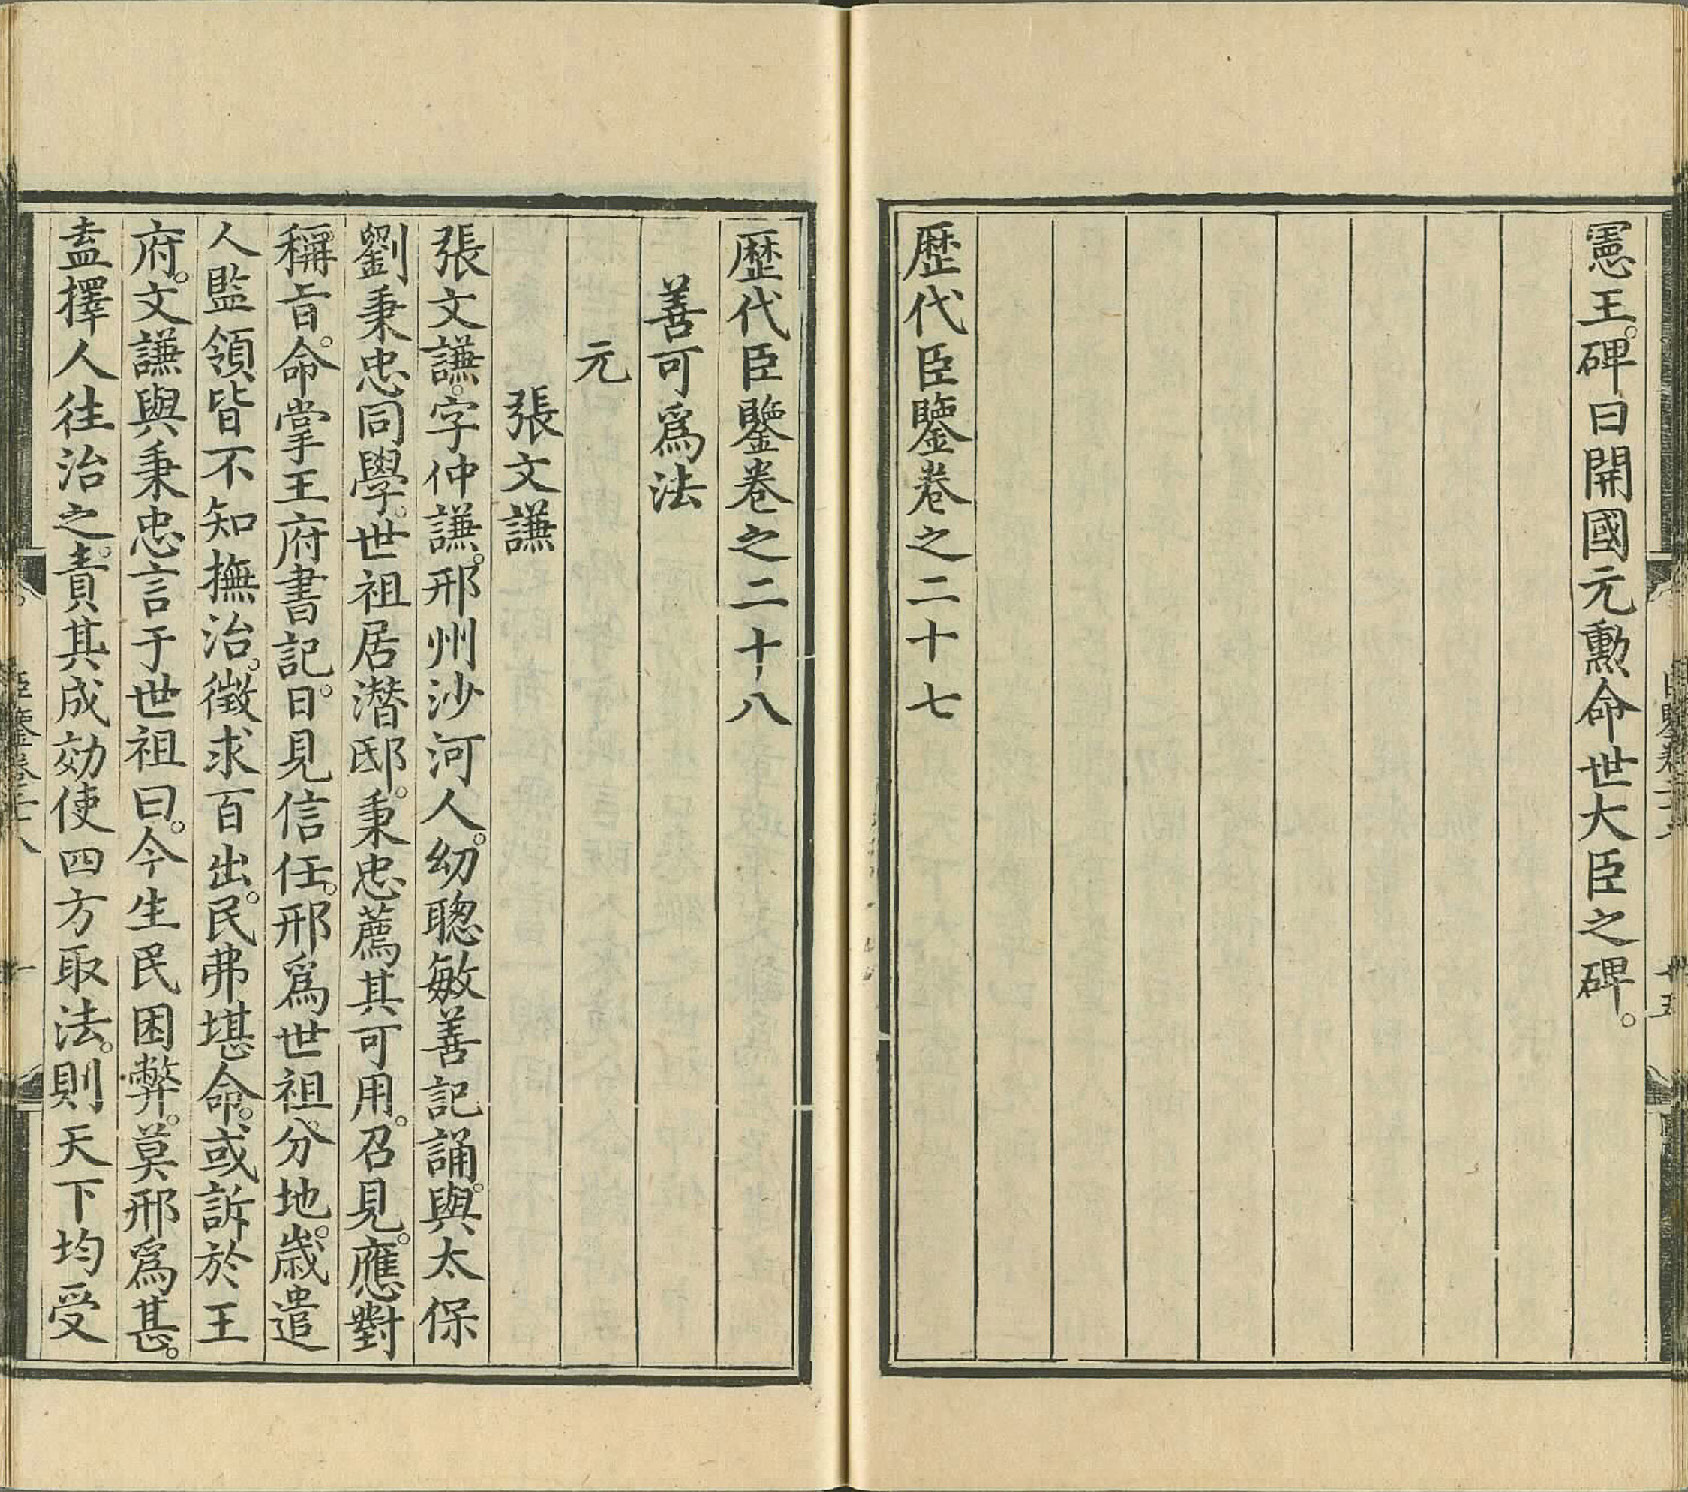 憲王。碑曰開國元勲命世大臣之碑。
歷代臣鑒卷之二十七
歷代臣鑒卷之二十八
善可爲法
元
張文謙
張文謙。字仲謙。邢州沙河人。幼聰敏善記誦。與太保
劉秉忠同學。世祖居潛邸。秉忠薦其可用。召見。應對
稱旨。命掌王府書記。日見信任。邢爲世祖分地。歲遣
人監領皆不知撫治。徵求百出。民弗堪命。或訴於王
府。文謙與秉忠言于世祖曰。今生民困弊。莫邢爲甚。
盍擇人往治之。責其成効使四方取法。則天下均受
臣鑒卷二十八
一